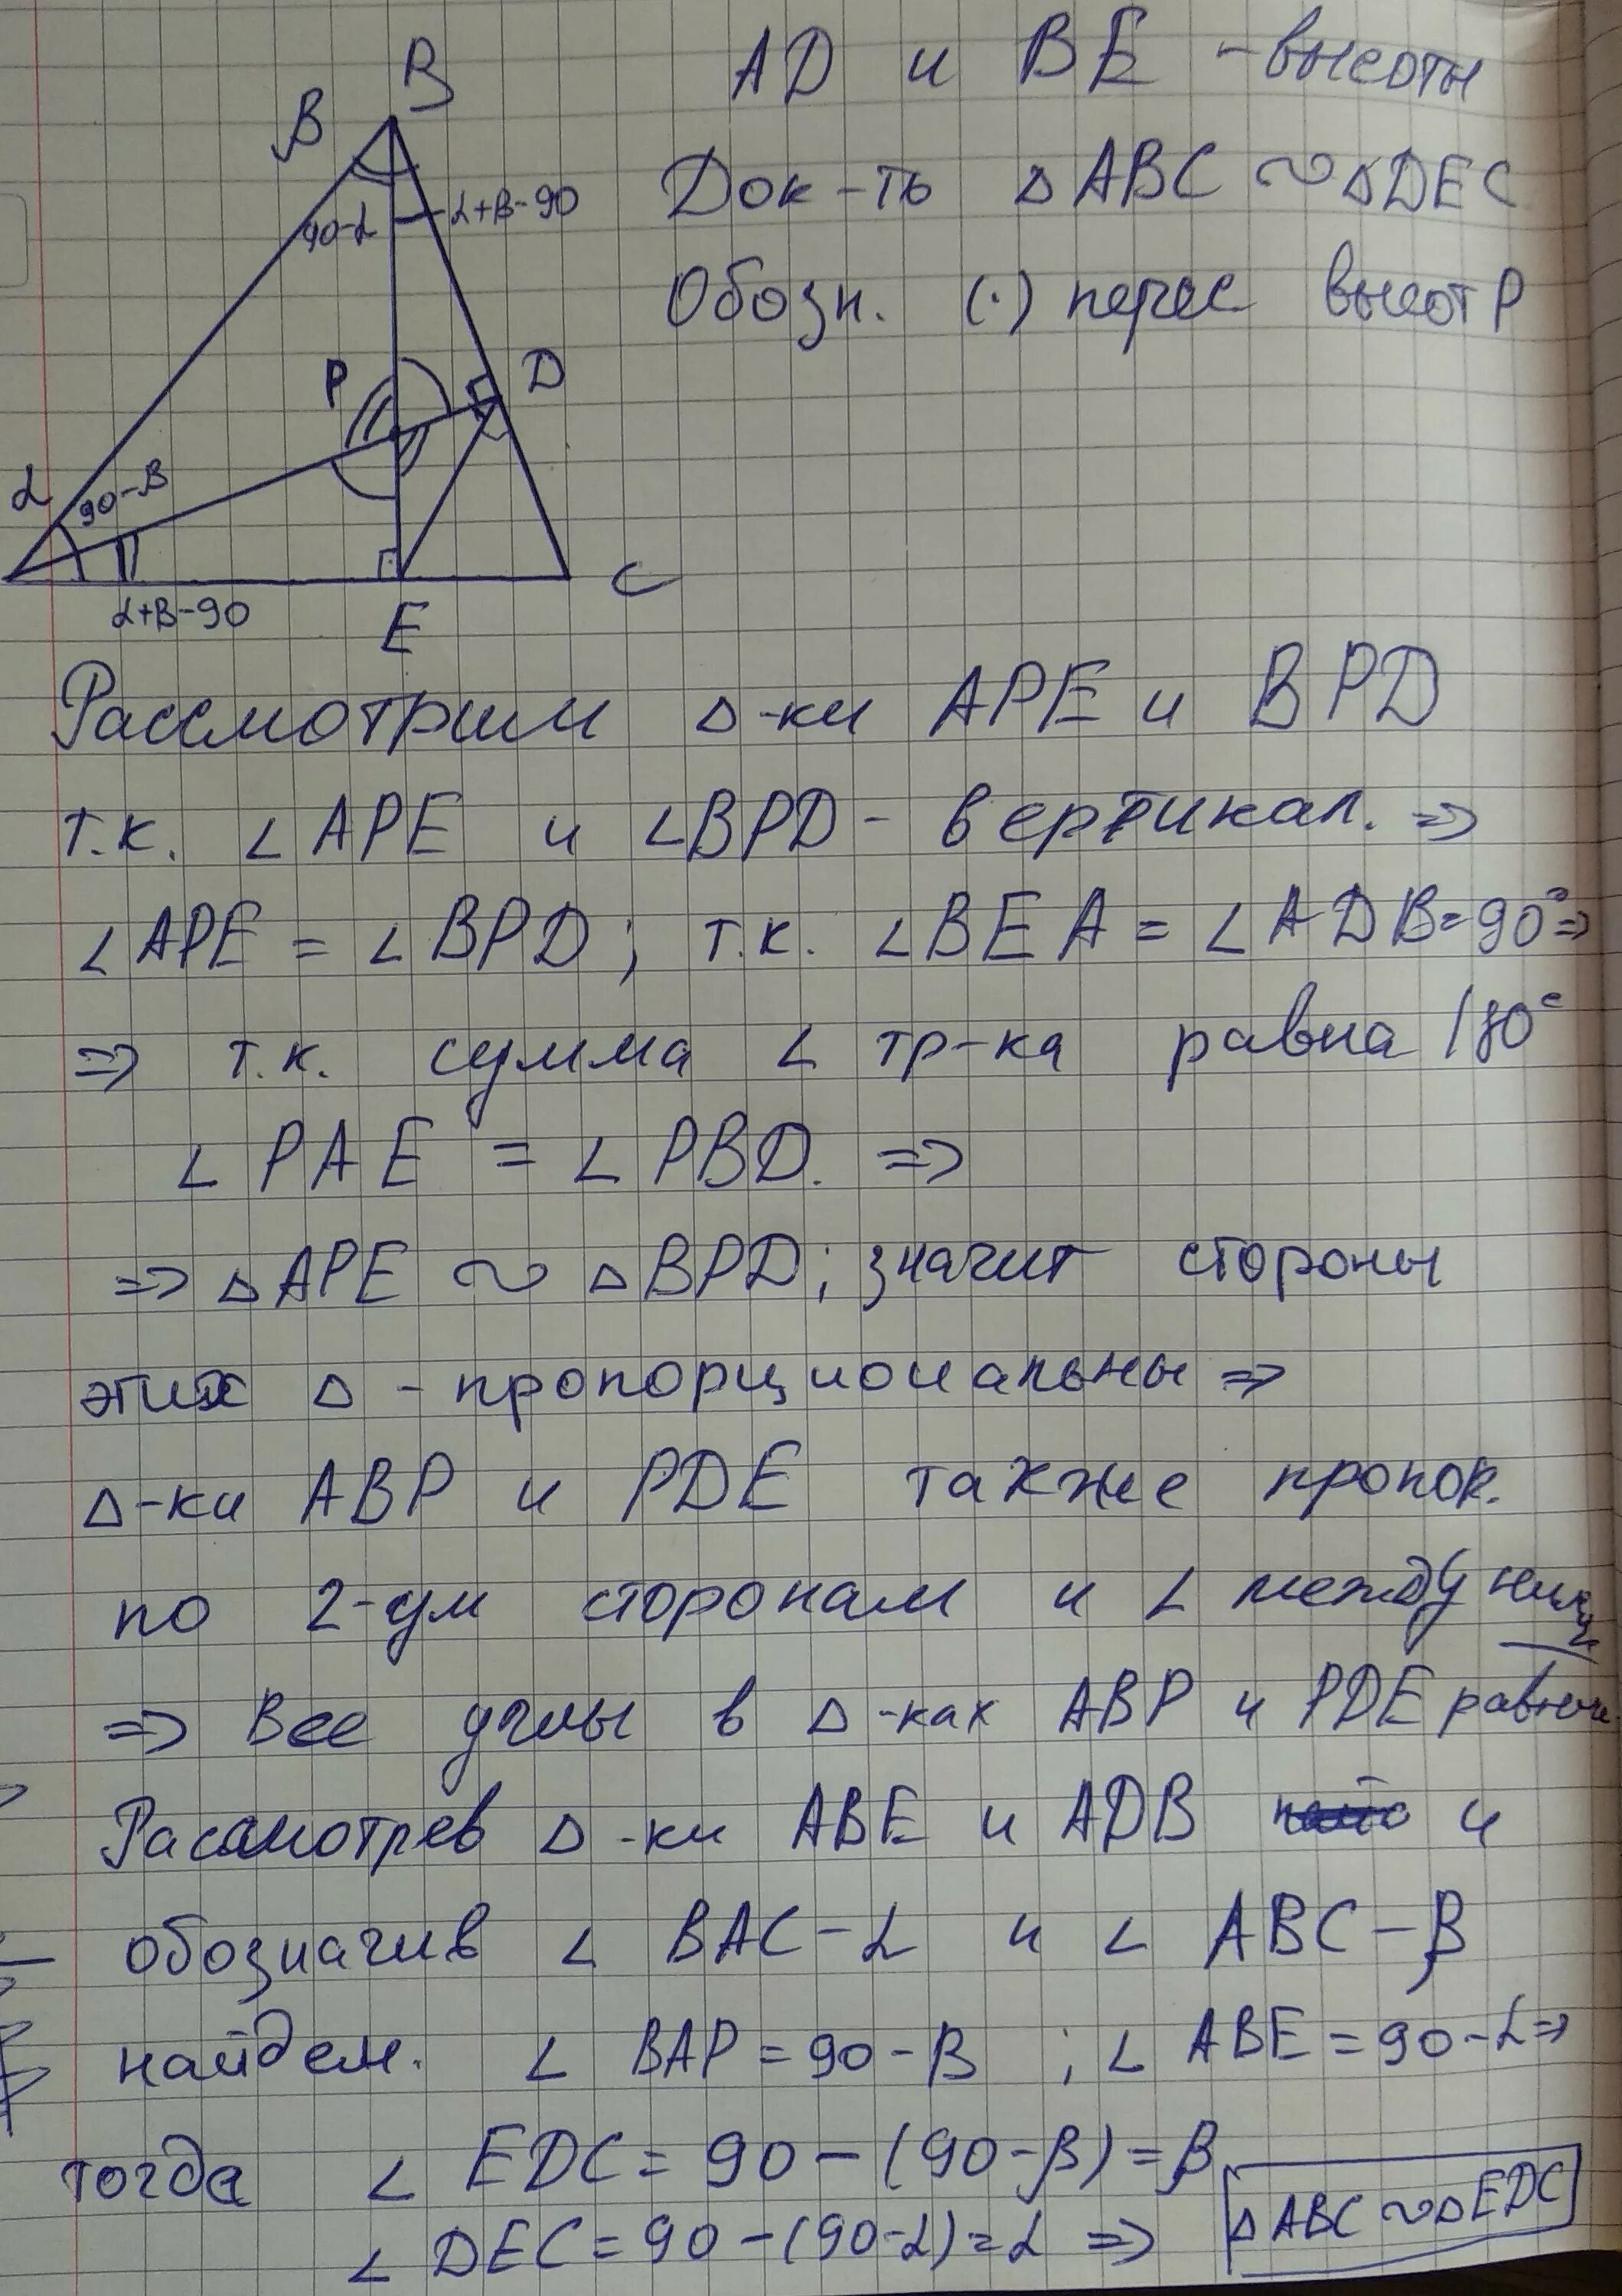 AD и BE - высоты
Док-ть △ABC ∾ △DEC
Обозн. (·) перес высот P
B
β
90-α
α+β-90
P
D
α
90-β
α+β-90
E
C
Рассмотрим △-ки APE и BPD
т.к. ∠APE и ∠BPD - вертикал. =>
∠APE = ∠BPD; т.к. ∠BEA = ∠ADB=90°=>
=> т.к. сумма ∠ тр-ка равна 180°
∠PAE = ∠PBD. =>
=> △APE ∾ △BPD; значит стороны
этих △ - пропорциональны =>
△-ки ABP и PDE также пропор.
по 2-ум сторонам и ∠ между ними
=> Все углы в △-ках ABP и PDE равны.
Рассмотрев △-ки ABE и ADB и
обозначив ∠ BAC-α и ∠ ABC-β
найдем. ∠ BAP = 90-β ; ∠ ABE = 90-α=>
тогда ∠ EDC = 90-(90-β)=β
∠ DEC = 90-(90-α)=α => △ABC ∾ △EDC